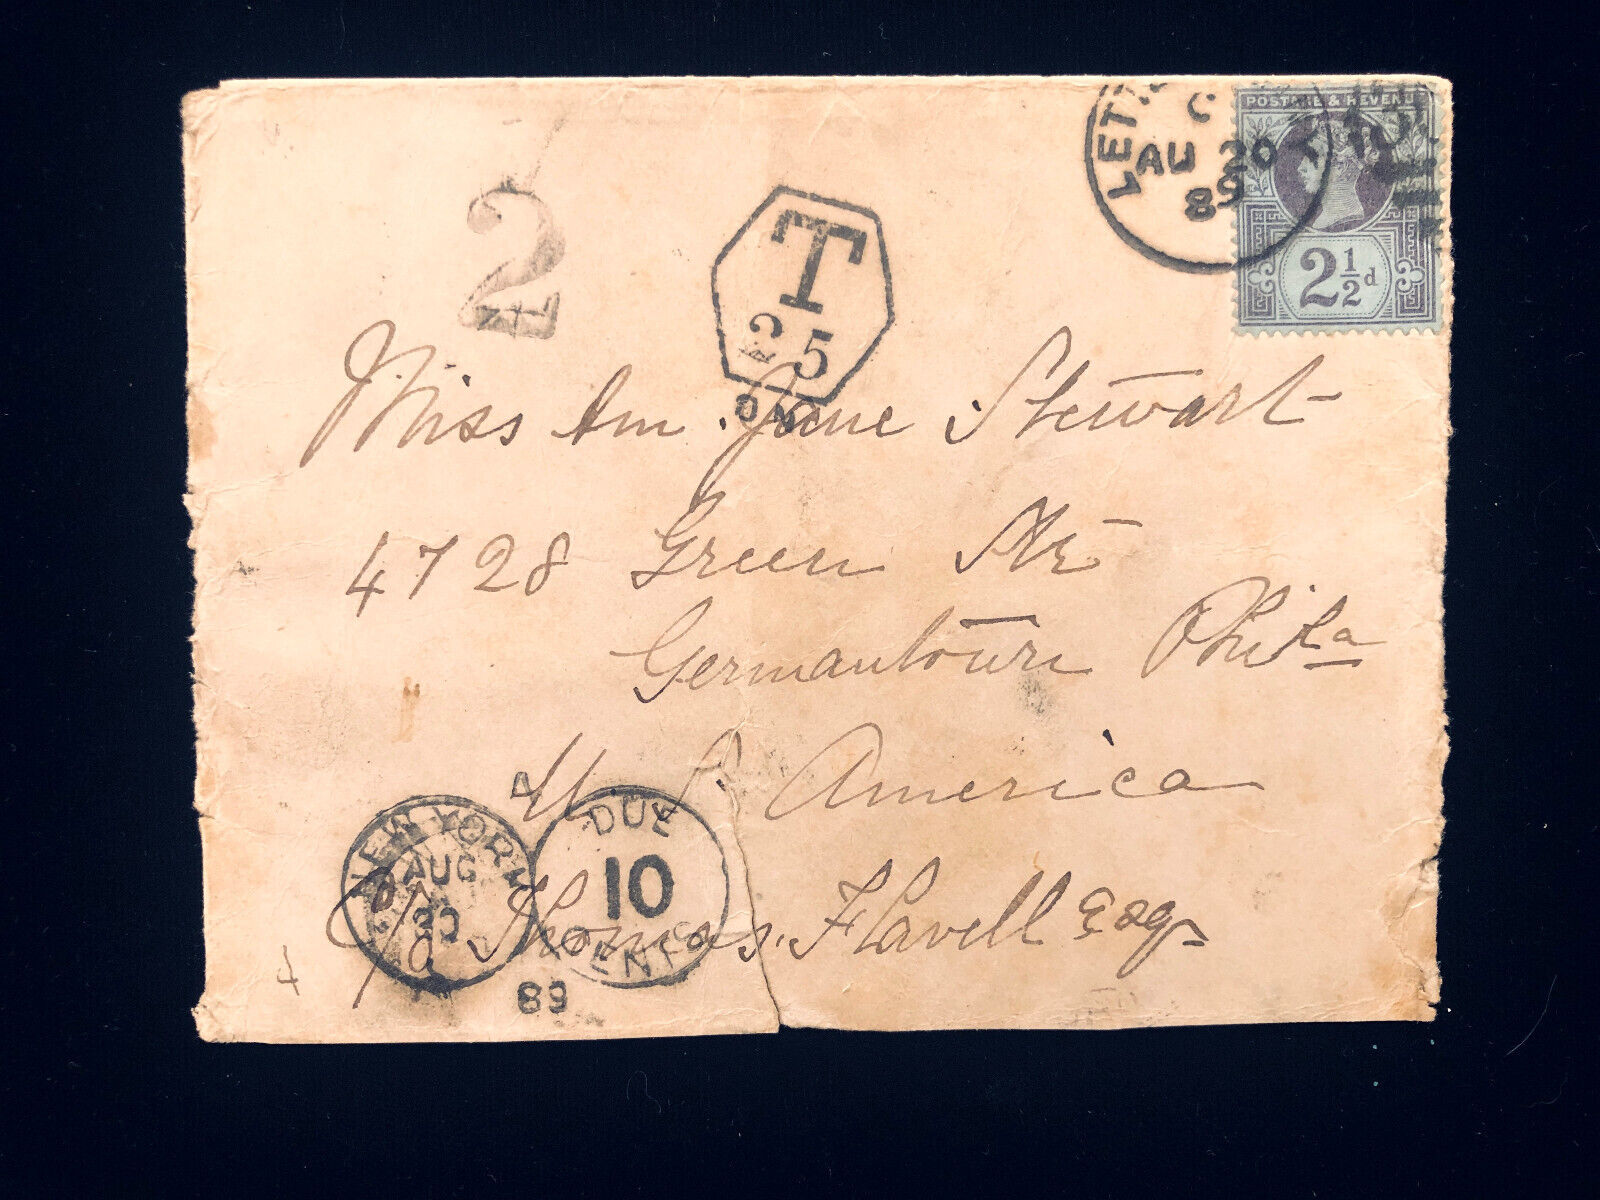 POSTAGE & REVENUE
2½d
C
AU 20
89
2
T
25
Miss Am Jane Stewart
4728 Green Str
Germantown Phila
U. S. America
c/o Thomas Flavell Esqr
NEW YORK
AUG
89
DUE
10
CENTS